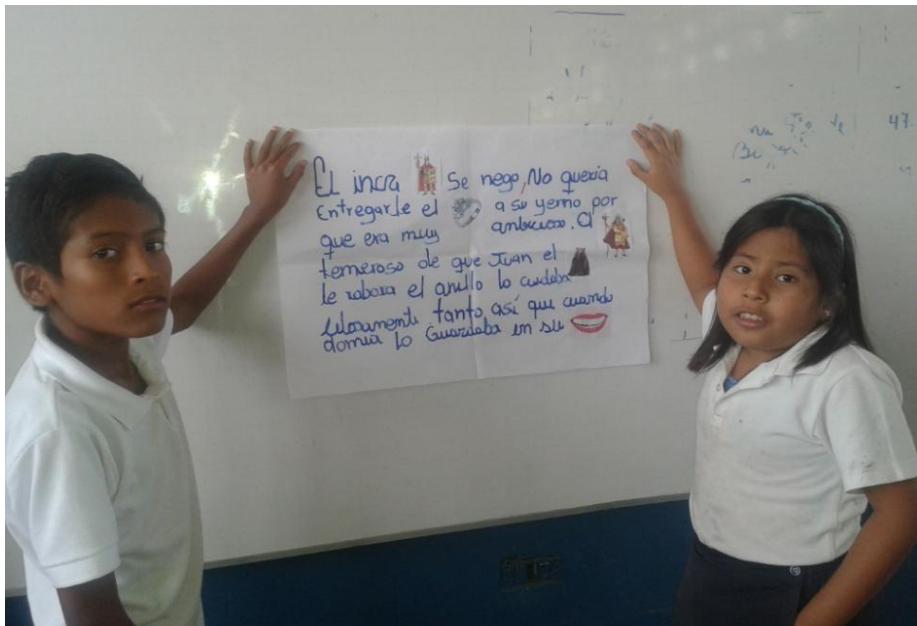 El inca Se nego, No queria
Entregarle el a su yerno por
que era muy ambicioso. El
temeroso de que Juan el
le robara el anillo lo cuidaba
tanto, así que cuando
dormia lo Guardaba en su
47.